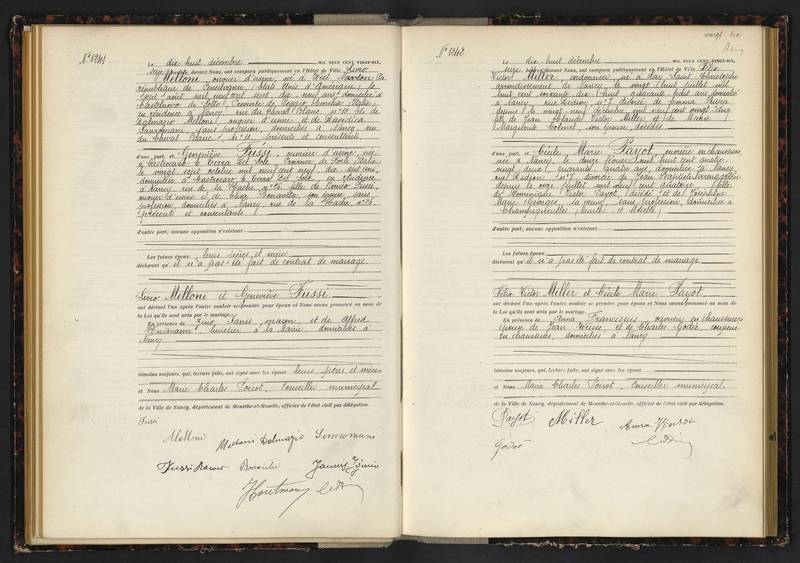 N° 1241
Le dix-huit décembre MIL NEUF CENT VINGT-SIX,
devant Nous, ont comparu publiquement en l'Hôtel de Ville Livio
Melloni, ouvrier d'usine, né à West
république de Pensilvanie, Etats Unis d'Amérique, le
mil neuf cent sept, dix-neuf ans, domicilié à
Castelnovo di Sotto, Province de Reggio Emilia, Italie,
en résidence à Nancy, rue du Cheval Blanc, n° 10, fils de
Dalmazio Melloni, ouvrier d'usine et de
sans profession, domiciliés à Nancy, rue
du Cheval Blanc, n° 10, présents et consentants
d'une part, et Geneviève Fussi, ouvrière d'usine, née
à Castrocaro e Terra del Sole, Province de Forli, Italie,
le vingt sept octobre mil neuf cent neuf, dix sept ans,
domiciliée à Castrocaro e Terra del Sole, en résidence
à Nancy, rue de la Hache, n° 26, fille de Roméo Fussi,
ouvrier d'usine et de son épouse, sans
profession, domiciliés à Nancy, rue de la Hache, n° 26,
présents et consentants
d'autre part; aucune opposition n'existant
Les futurs époux, leurs pères et mères
déclarent qu'il n'a pas été fait de contrat de mariage.
Livio Melloni et Geneviève Fussi
ont déclaré l'un après l'autre vouloir se prendre pour époux et Nous avons prononcé au nom de
la Loi qu'ils sont unis par le mariage.
En présence de maçon, et de Alfred
à la Mairie, domiciliés à
Nancy
témoins majeurs, qui, lecture faite, ont signé avec les époux leurs pères et mères
et Nous Marie Charles conseiller municipal
de la Ville de Nancy, département de Meurthe-et-Moselle, officier de l'état civil par délégation.
Fussi
Melloni Melloni Dalmazio
Fussi Romeo
vingt six
N° 1242
Le dix-huit décembre MIL NEUF CENT VINGT-SIX,
devant Nous, ont comparu publiquement en l'Hôtel de Ville Félix
Victor Miller, cordonnier, né à Lay Saint Christophe
arrondissement de Nancy, le vingt huit juillet mil
huit cent soixante dix-huit, quarante huit ans, domicilié
à Nancy, rue n° 7, divorcé de
depuis le neuf décembre mil neuf cent vingt cinq,
fils de Jean Claude Victor Miller et de Marie
Marguerite son épouse, décédés
d'une part, et Cécile Marie Payot, ouvrière en chaussures,
née à Nancy, le douze février mil huit cent quatre
vingt deux, quarante quatre ans, domiciliée à Nancy,
rue n° 7, divorcée de Jean Baptiste
depuis le onze juillet mil neuf cent quatorze, fille
de Dominique Victor Payot, décédé et de Joséphine
Marie Georges, sa veuve, sans profession, domiciliée à
Champigneulles, Meurthe et Moselle
d'autre part; aucune opposition n'existant
Les futurs époux
déclarent qu'il n'a pas été fait de contrat de mariage
Félix Victor Miller et Cécile Marie Payot
ont déclaré l'un après l'autre vouloir se prendre pour époux et Nous avons prononcé au nom de
la Loi qu'ils sont unis par le mariage.
En présence de Anna ouvrière en chaussures
épouse de Jean et de Charles Godié, coupeur
en chaussures, domiciliés à Nancy
témoins majeurs, qui, lecture faite, ont signé avec les époux
et Nous Marie Charles Conseiller municipal
de la Ville de Nancy, département de Meurthe-et-Moselle, officier de l'état civil par délégation.
Payot Miller Anna